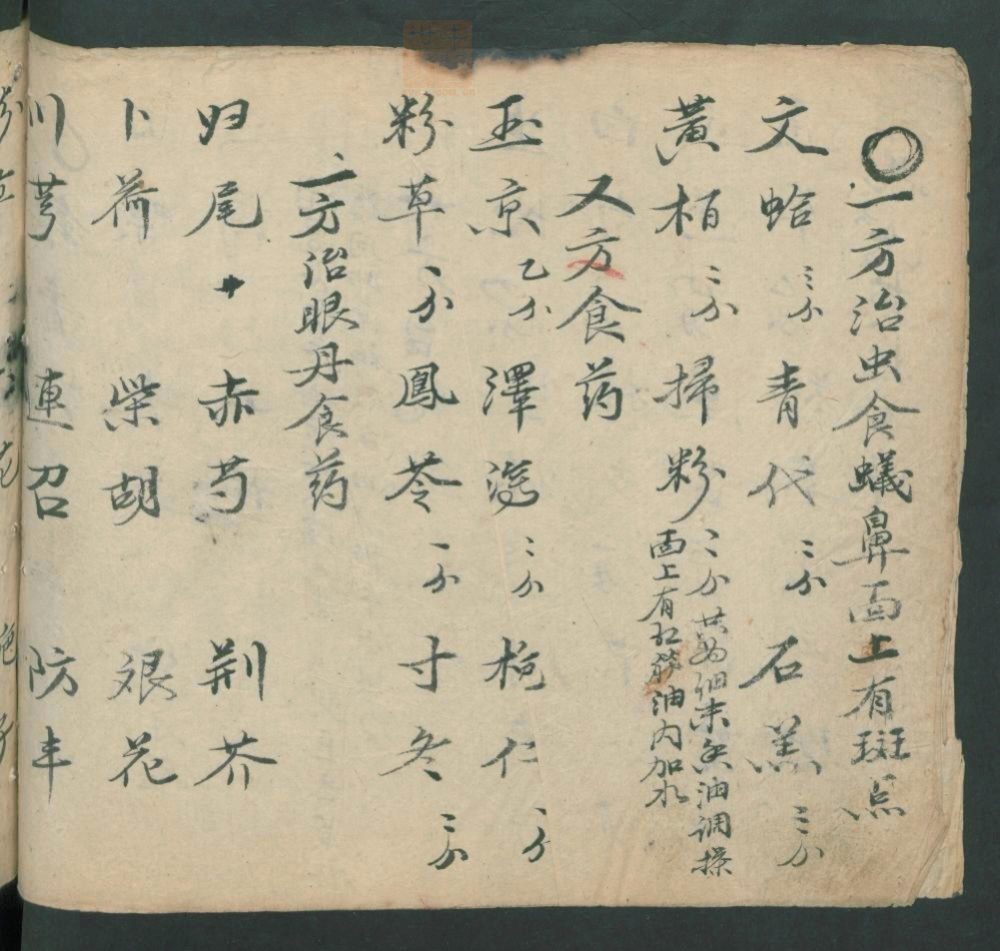 〇一方治虫食蟻鼻面上有斑点
文蛤 三分 青代 三分 石羔 三分
黃柏 三分 掃粉 三分 共為细末 油調搽
面上有红筋油内加水
又方食药
玉京 乙分 澤瀉 三分 桃仁 二分
粉草 一分 鳳苓 一分 寸冬 三分
一方治眼丹食药
归尾 十 赤芍 荆芥
卜荷 柴胡 艮花
川芎 連召 防丰